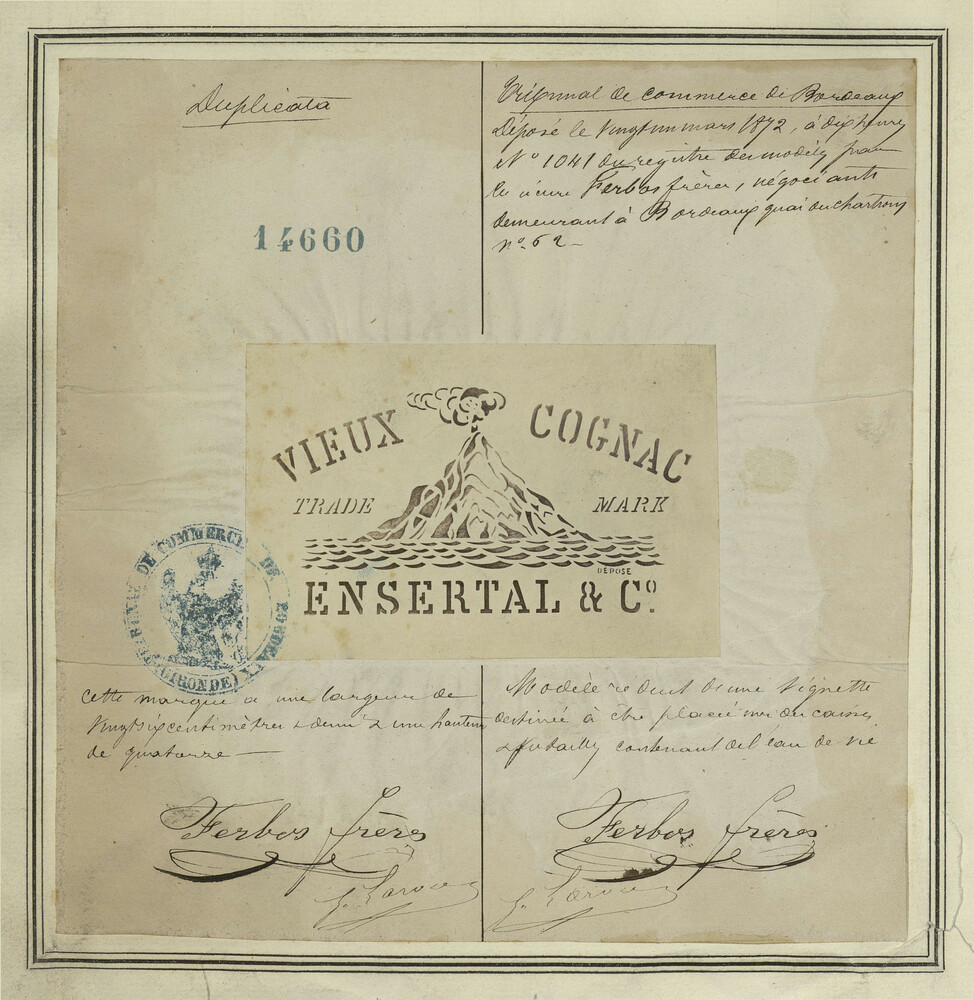 Duplicata
14660
Tribunal de commerce de Bordeaux
Déposé le vingt un mars 1872, à dix heures
N° 1041 du registre des modèles par
les sieurs Ferbos frères, négociants
demeurant à Bordeaux quai des chartrons
n°. 62
VIEUX COGNAC
TRADE MARK
DÉPOSÉ
ENSERTAL & Cº.
TRIBUNAL DE COMMERCE DE BORDEAUX
(GIRONDE)
Cette marque a une largeur de
vingt six centimètres & demi & une hauteur
de quatorze
Modèle réduit d'une vignette
destinée à être placée sur des caisses
& futailles contenant de l'eau de vie
Ferbos frères
Ferbos frères